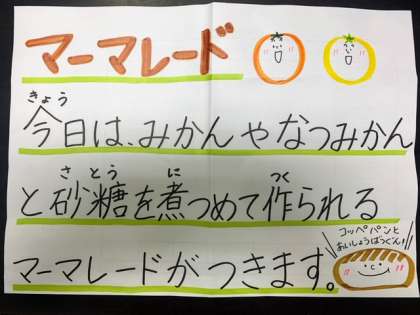 マーマレード
きょう
今日は、みかんやなつみかん
さとう に つく
と砂糖を煮つめて作られる
コッペパンと
あいしょうばつぐん!
マーマレードがつきます。